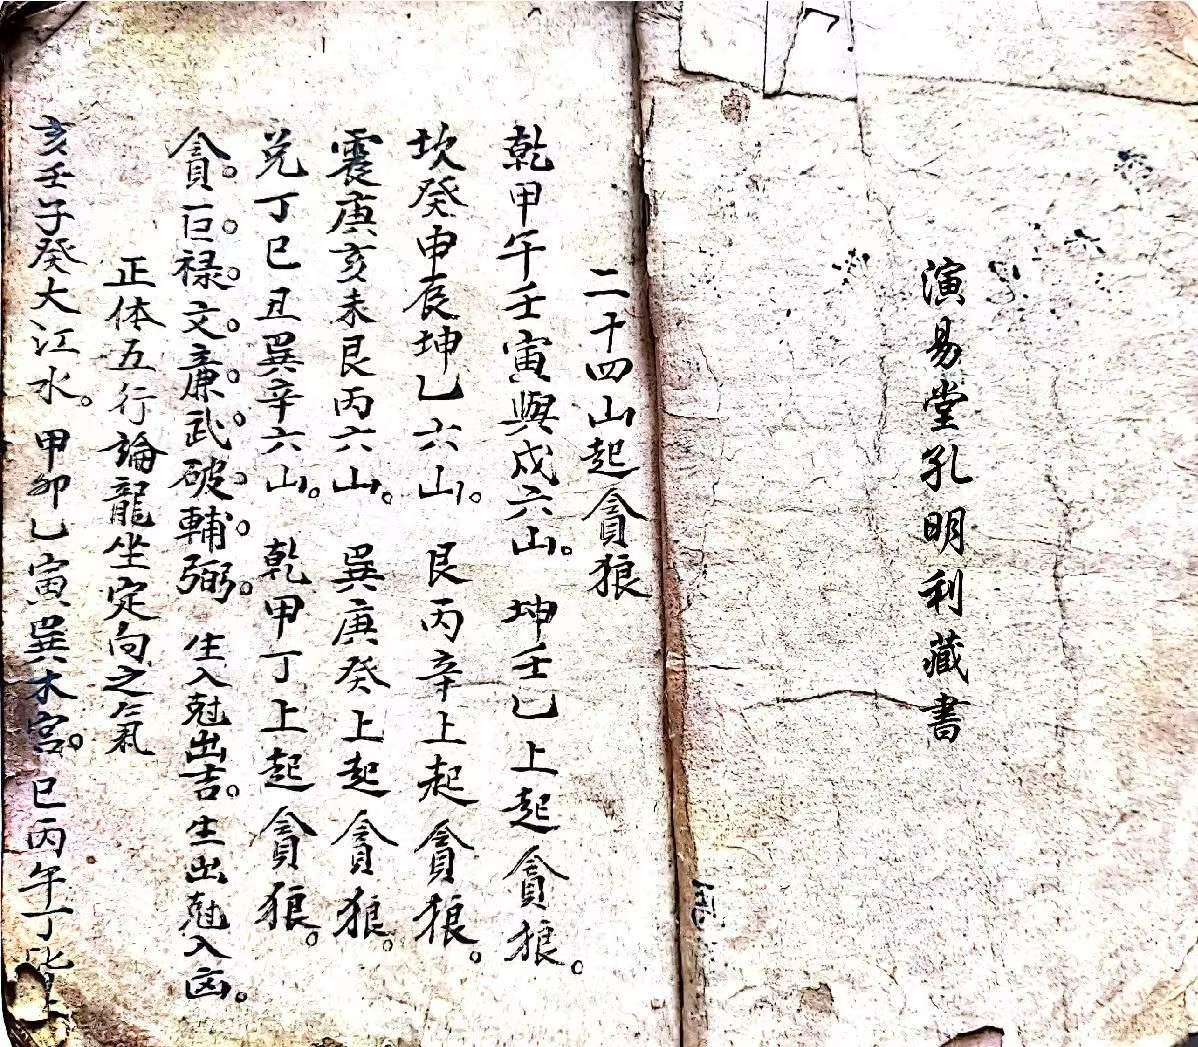 演易堂孔明利藏書
二十四山起貪狼
乾甲午壬寅與戍六山。坤壬乙上起貪狼。
坎癸申辰坤乙六山。艮丙辛上起貪狼。
震庚亥未艮丙六山。巽庚癸上起貪狼。
兑丁巳丑巽辛六山。乾甲丁上起貪狼。
貪。巨。禄。文。亷。武。破。輔。弼。生入尅出吉。生出尅入凶。
正体五行論龍坐定向之氣
亥壬子癸大江水。甲卯乙寅巽木宮。巳丙午丁